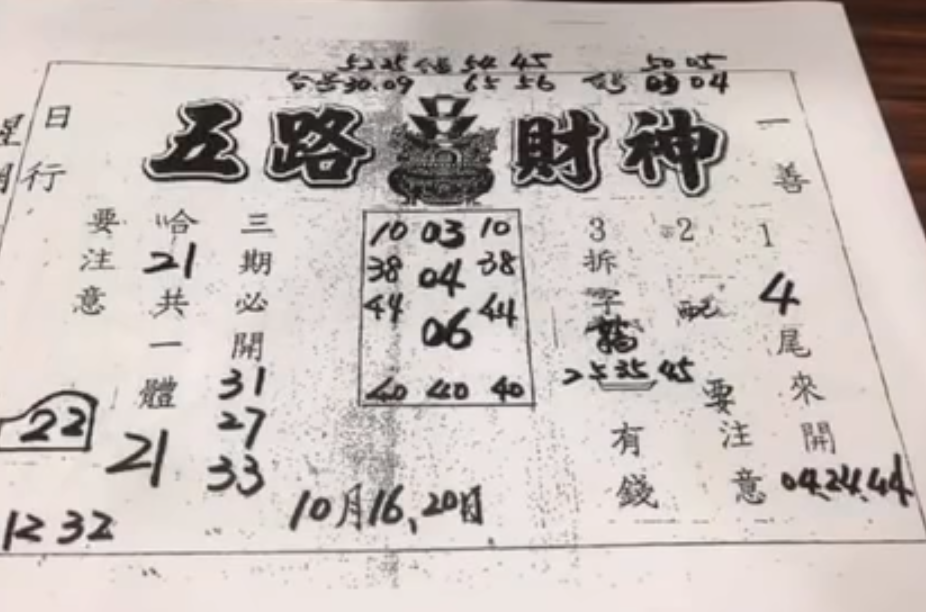 52 25 合 54 45 50 05
合 30.09 65 56 合 03 04
五路財神
一善
日行
星期
1 4尾來開 04.24.44
2 配 要注意
3 拆字 25 35 45 有錢
10 03 10
38 04 38
44 06 44
40 40 40
三期必開 31 27 33
哈 21 共一體 21
要注意
22
12 32
10月16,20日